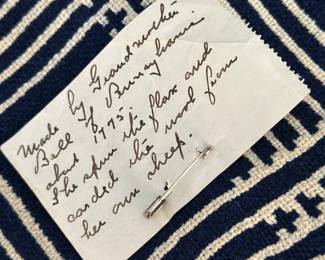 Made by Grandmother
Bell of
about 1775.
She spun the flax and
carded the wool from
her own sheep.